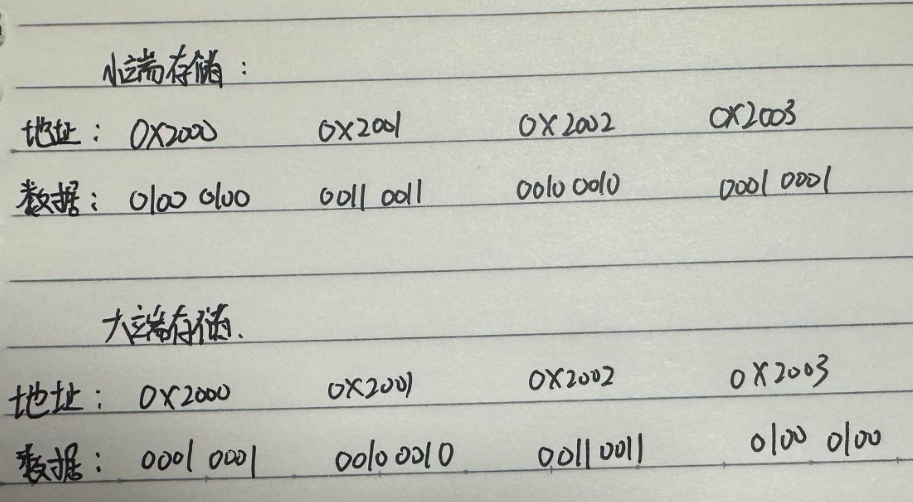 小端存储：
地址： 0X2000 0X2001 0X2002 0X2003
数据： 0100 0100 0011 0011 0010 0010 0001 0001
大端存储.
地址： 0X2000 0X2001 0X2002 0X2003
数据： 0001 0001 0010 0010 0011 0011 0100 0100